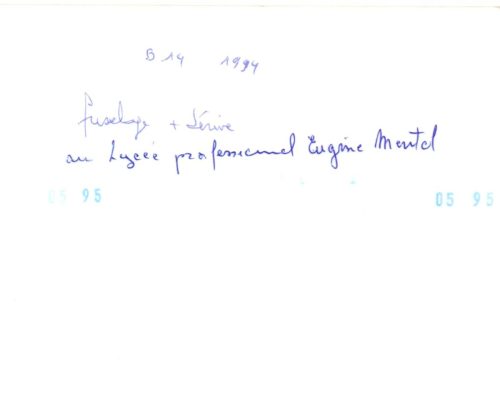 B 14 1994
fuselage + dérive
au Lycée professionnel Eugène Montel
05 95 05 95